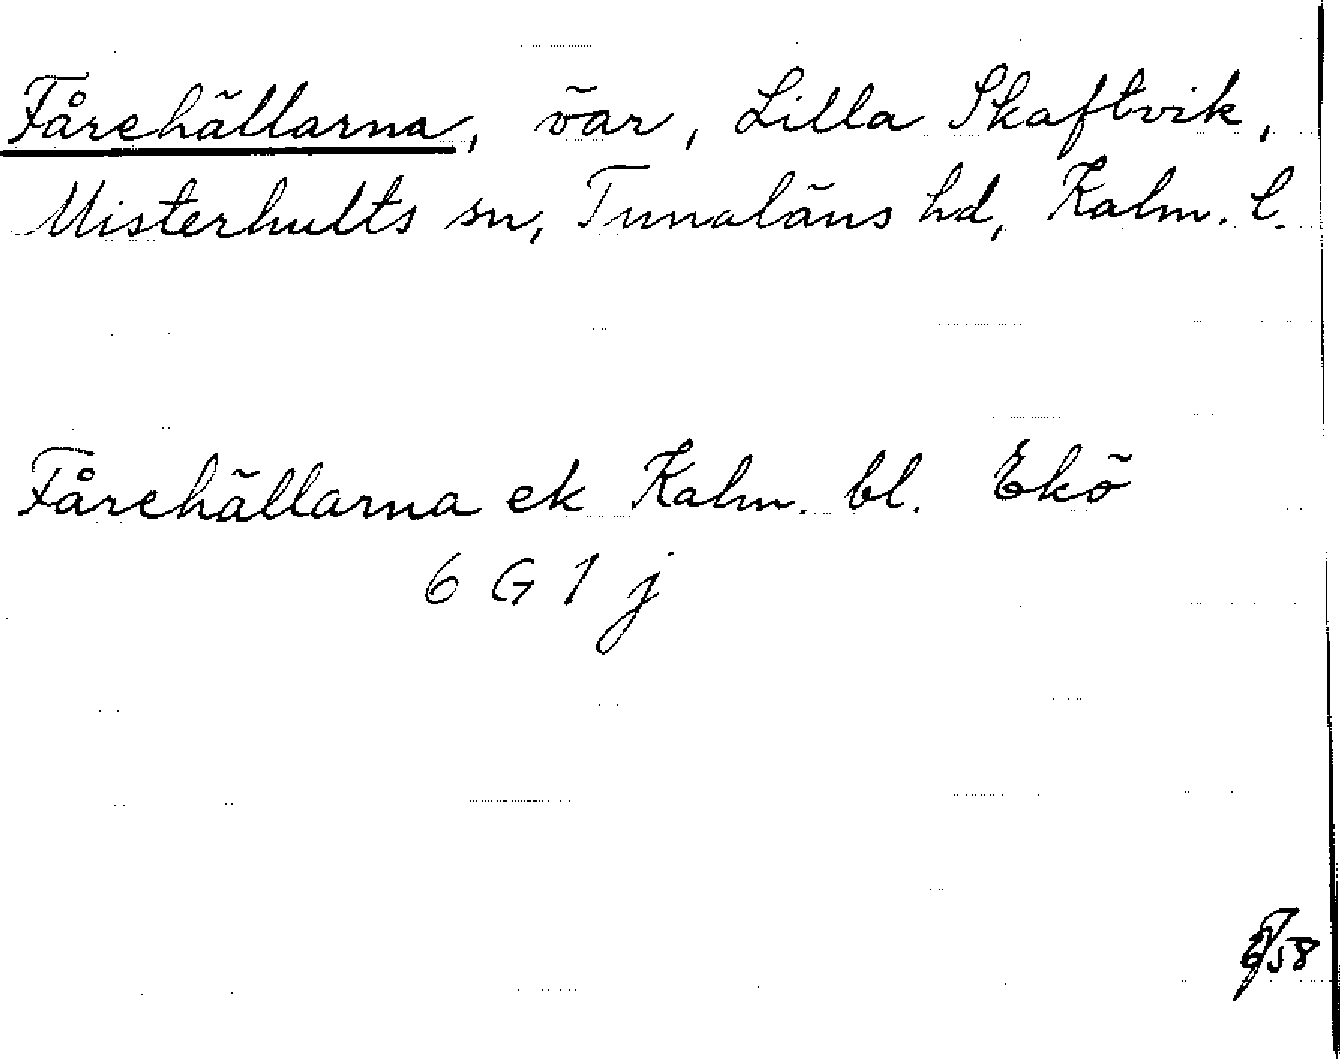 Fårehällarna, öar, Lilla Skaftvik,
Misterhults sn, Tunaläns hd, Kalm. l.
Fårehällarna ek Kalm. bl. Ekö
6 G 1 j
58